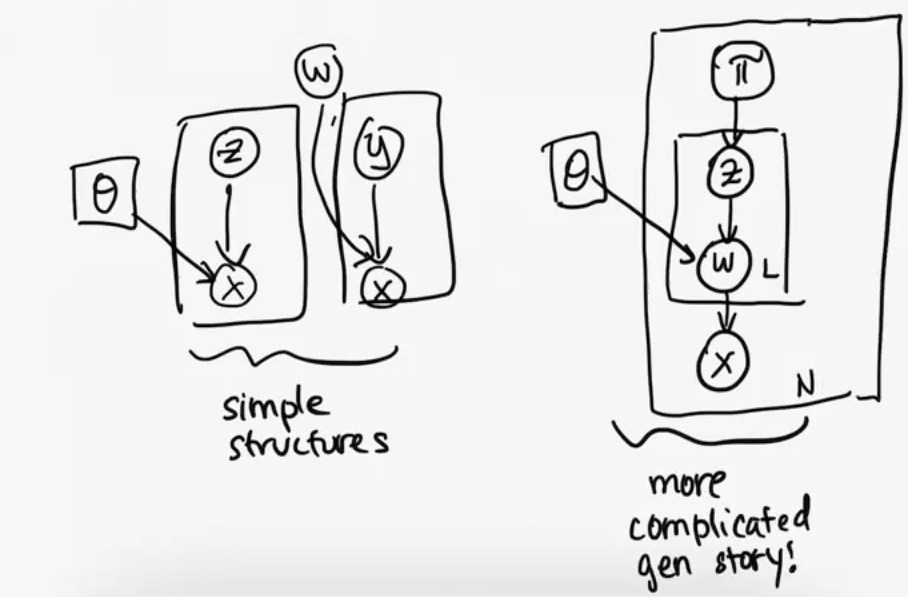 W
z
y
θ
x
x
simple
structures
π
θ
z
w
L
x
N
more
complicated
gen story!